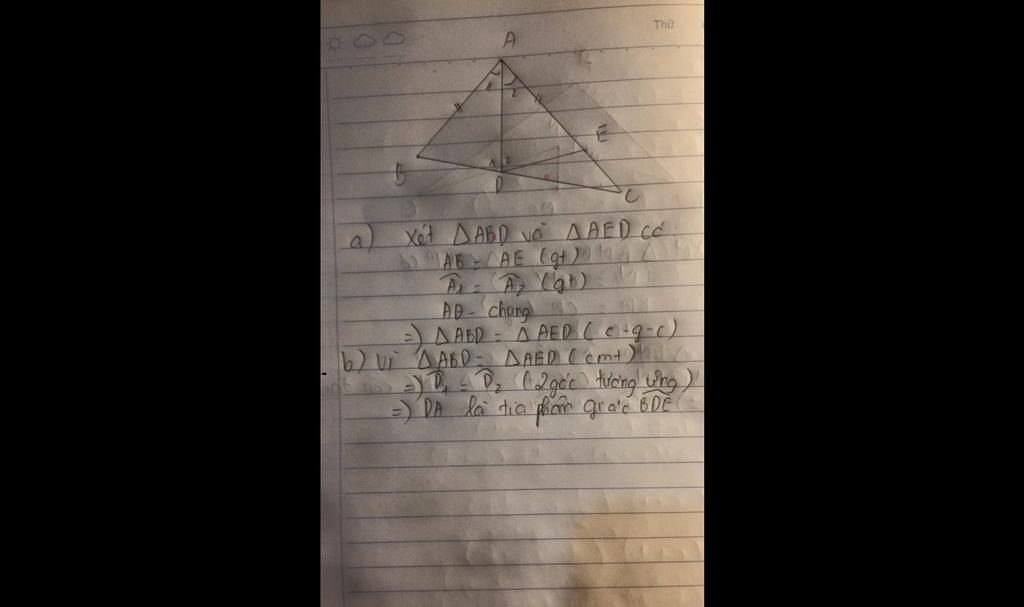 Thứ
A
1 2
E
B
1 2
D
C
a) Xét △ABD và △AED có:
AB = AE (gt)
Â1 = Â2 (gt)
AD - chung
=) △ABD = △AED (c-g-c)
b) Vì △ABD = △AED (cmt)
=) D̂1 = D̂2 (2 góc tương ứng)
=) DA là tia phân giác B̂DE